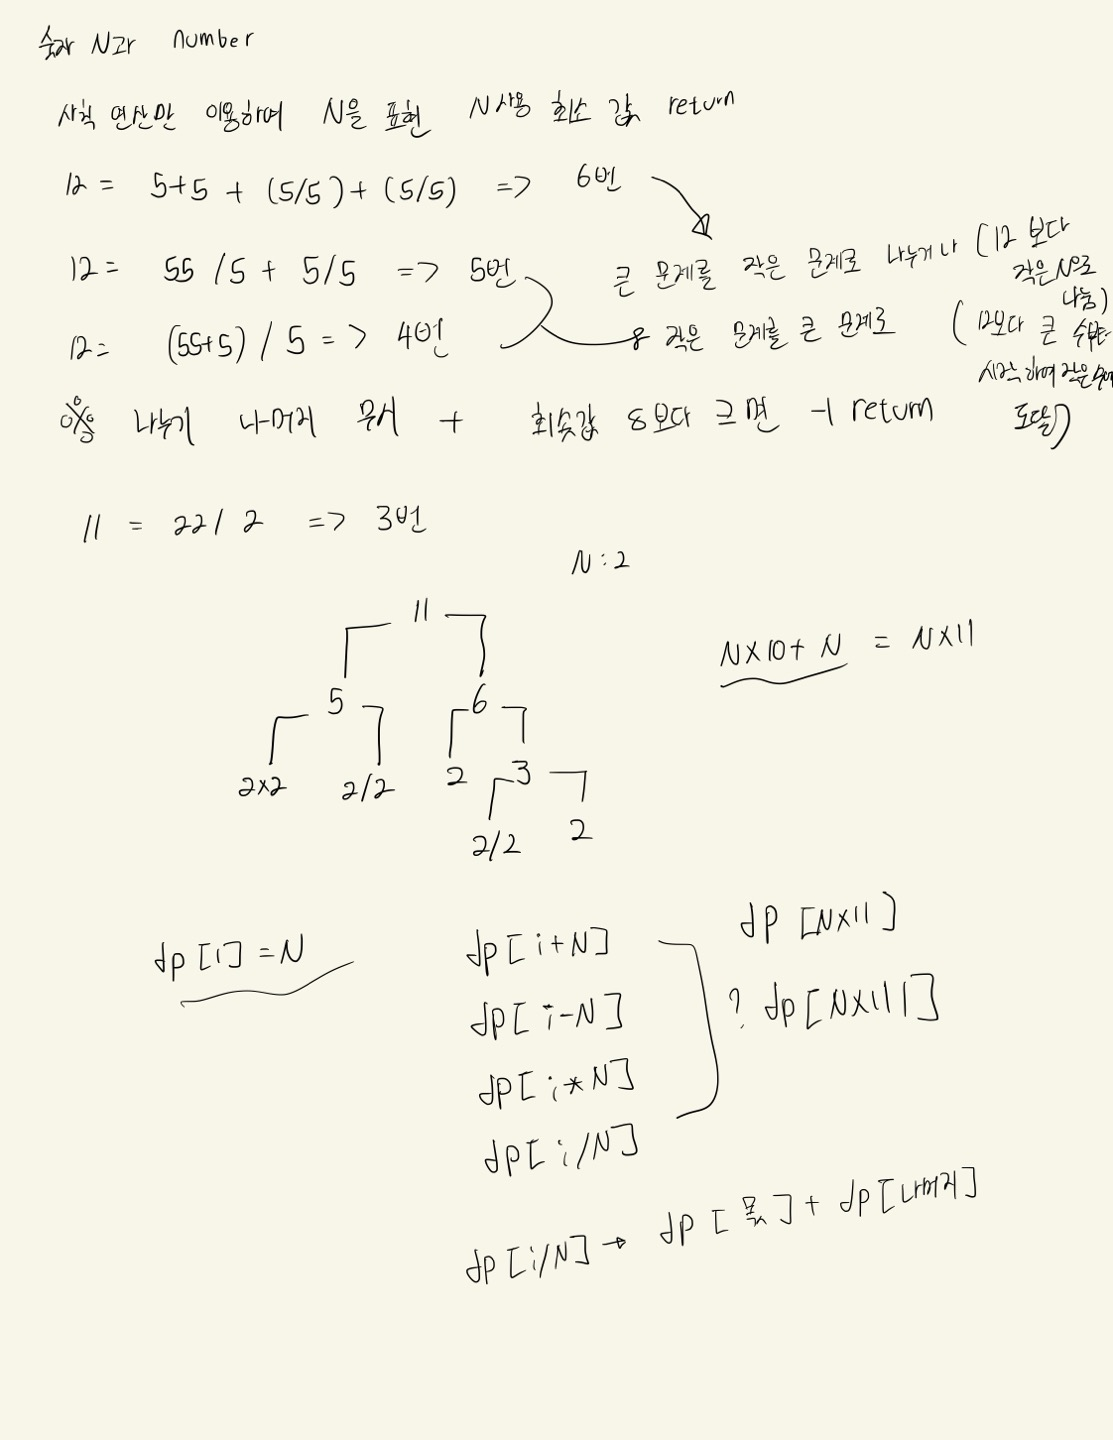 숫자 N과 number
사칙 연산만 이용하여 N을 표현 N사용 최소 값 return
12 = 5+5 + (5/5) + (5/5) => 6번
12 = 55 /5 + 5/5 => 5번
12 = (55+5) / 5 => 4번
큰 문제를 작은 문제로 나누거나 (12 보다
작은 N으로
나눔)
작은 문제를 큰 문제로 (12보다 큰 수부터
시작하여 작은수에
도달)
※ 나누기 나머지 무시 + 최솟값 8보다 크면 -1 return
11 = 22/ 2 => 3번
N : 2
11
5 6
2x2 2/2 2 3
2/2 2
Nx10+ N = Nx11
dp [1] = N
dp [i+N]
dp [i-N]
dp [i*N]
dp [i/N]
dp [Nx11]
? dp [Nx111]
dp [i/N] → dp [몫] + dp [나머지]